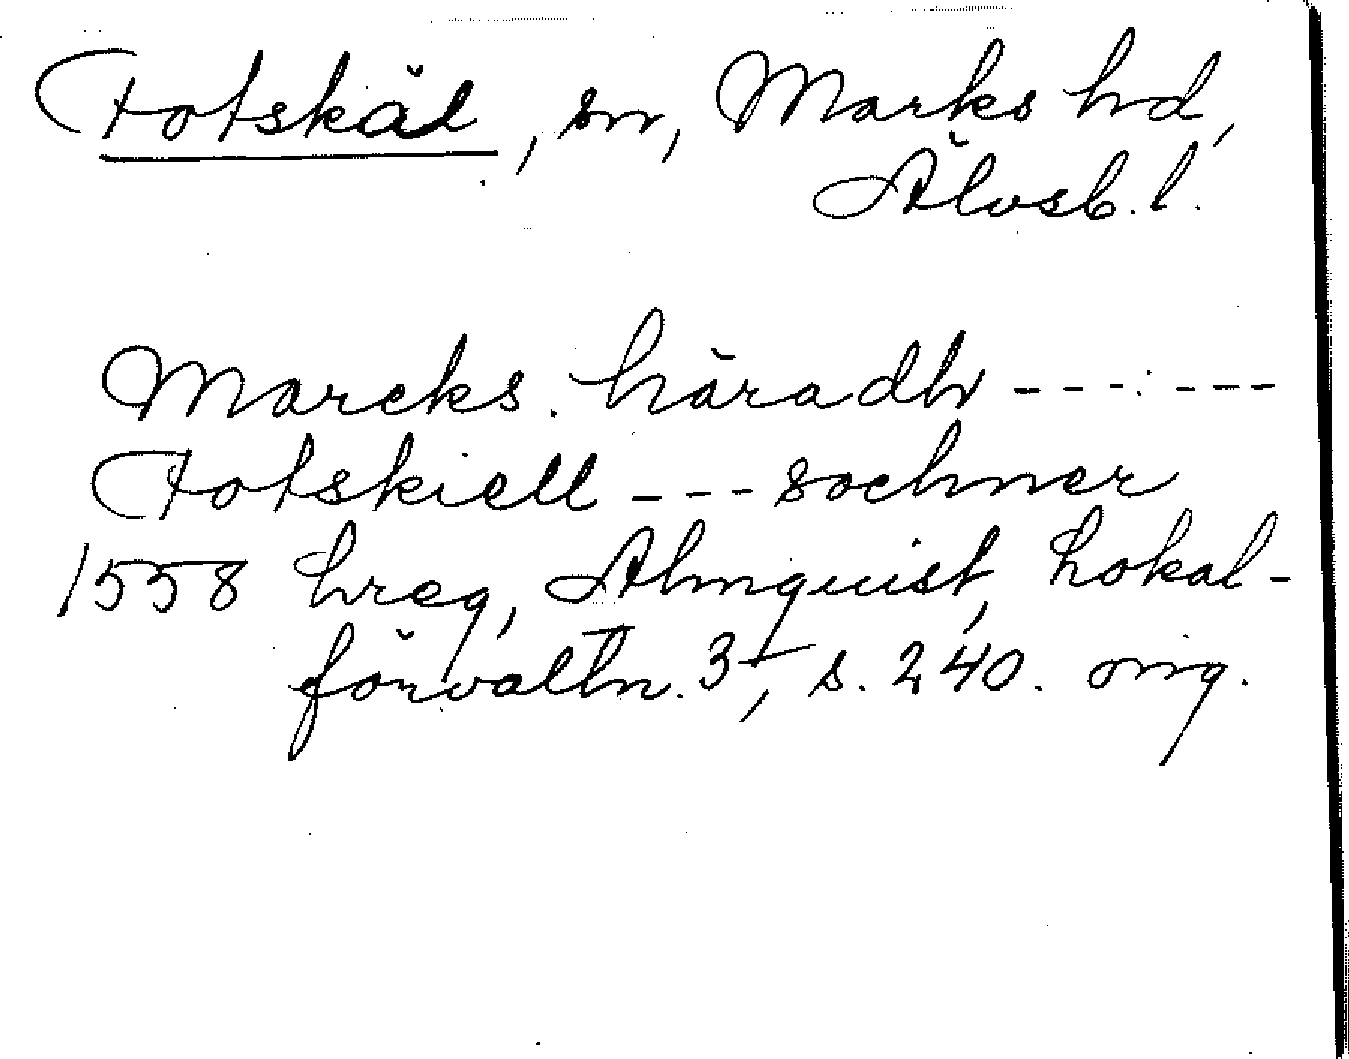 Fotskäl, sn, Marks hd,
Älvsb. l.
Marcks häradh - - - - - -
Fotskiell - - - sochner
1558 hreg, Almquist, Lokal-
förvaltn. 3, s. 240. orig.